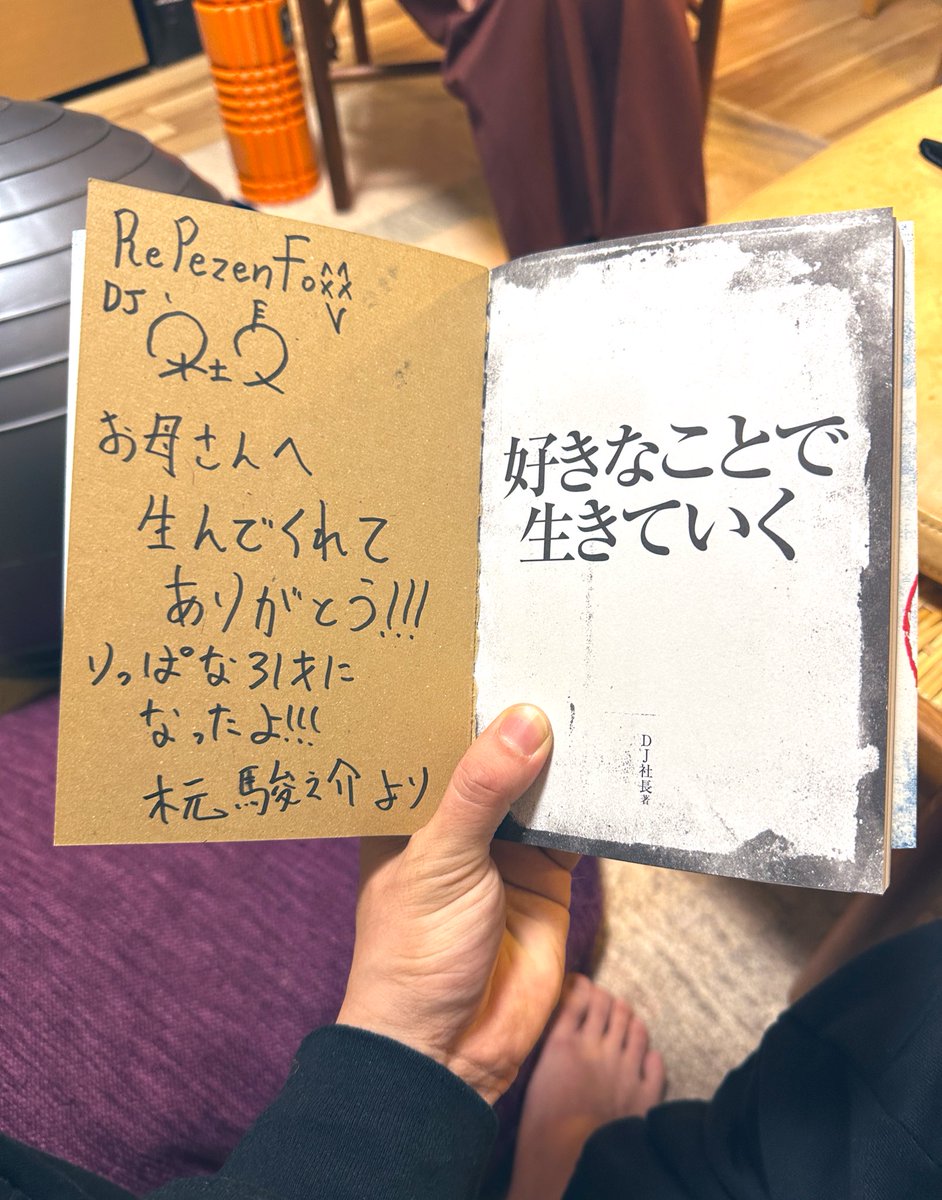 RePezenFoxx
DJ 社長
お母さんへ
生んでくれて
ありがとう!!!
りっぱな31才に
なったよ!!!
木元 駿之介より
好きなことで
生きていく
DJ社長 著